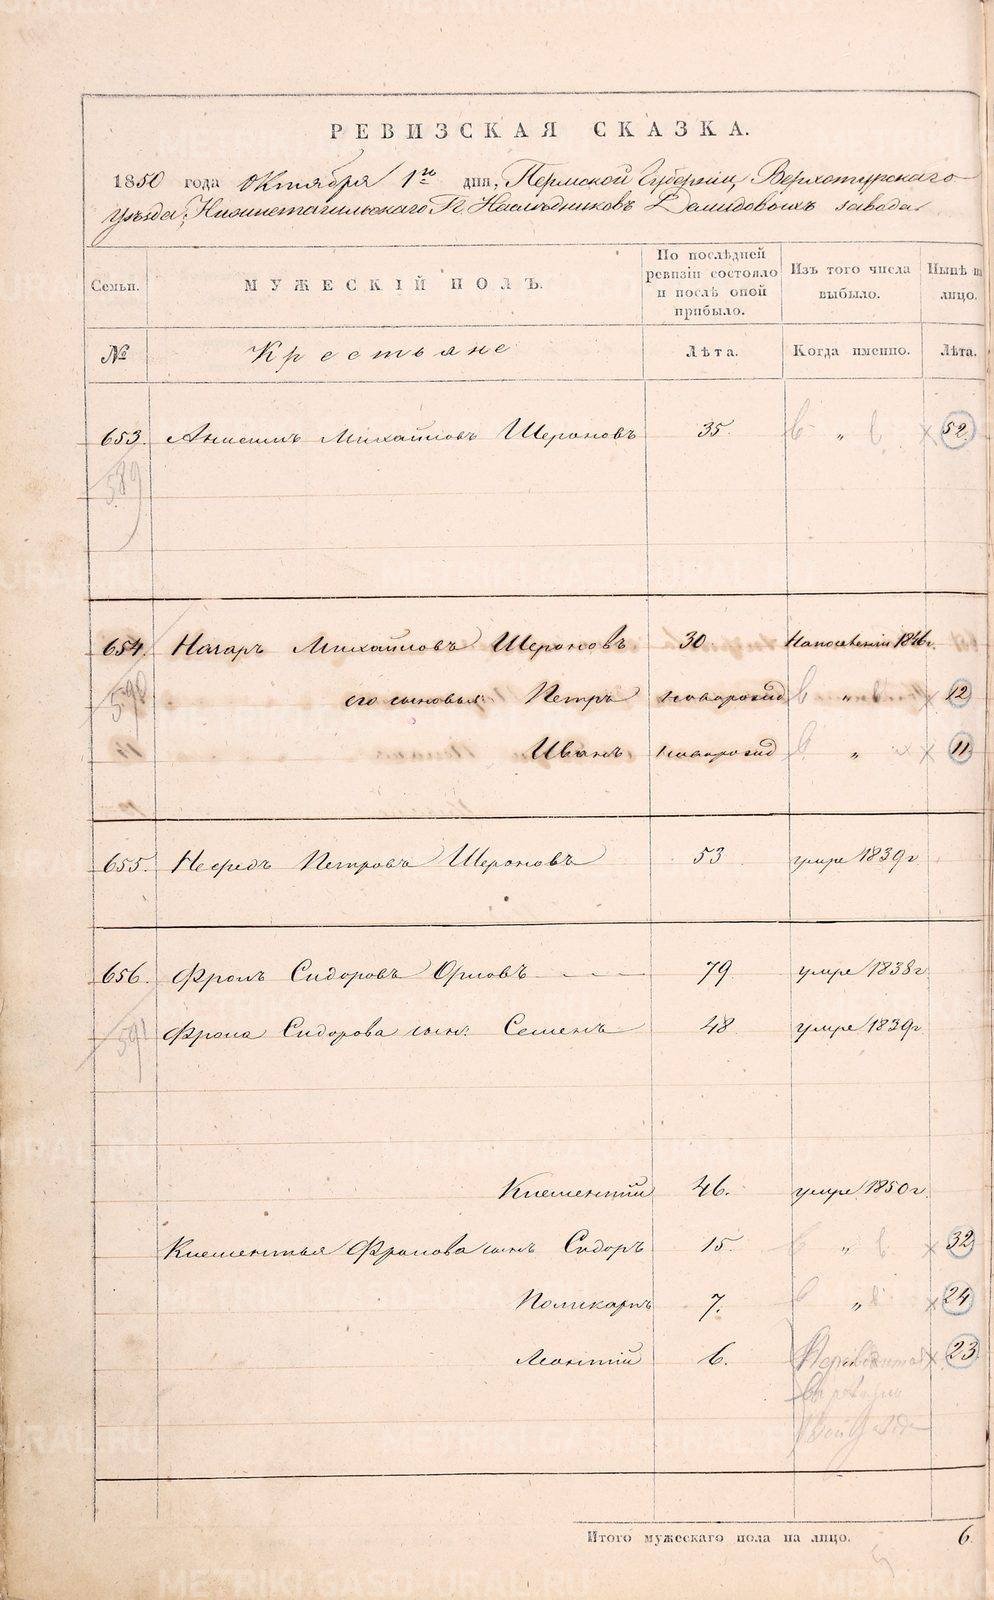 РЕВИЗСКАЯ СКАЗКА.
1850 года Октября 1го дня, Пермской Губерніи, Верхотурскаго
уѣзда, Нижнетагильскаго Гг. Наслѣдниковъ Демидовыхъ завода.
Семьи. МУЖЕСКІЙ ПОЛЪ. По послѣдней ревизіи состояло и послѣ оной прибыло. Изъ того числа выбыло. Нынѣ н лицо.
№ Крестьяне Лѣта. Когда именно. Лѣта.
653. Анисимъ Михайловъ Шероновъ 35. „ 52
589
654. Назаръ Михайловъ Шероновъ 30 На поселеніи 1846 г.
590 его сыновья Петръ новорожд „ 12
Иванъ новорожд „ 11
655. Нефедъ Петровъ Шероновъ 53 умре 1839 г
656. Фролъ Сидоровъ Орловъ 79 умре 1838 г
591 Фрола Сидорова сын: Семенъ 48 умре 1839 г
Клементій 46. умре 1850 г.
Клементья Фролова сынъ Сидоръ 15. „ 32
Поликарпъ 7. „ 24
Леонтій 6. 23
Итого мужескаго пола на лицо. 6
METRIKI.GASO-URAL.RU